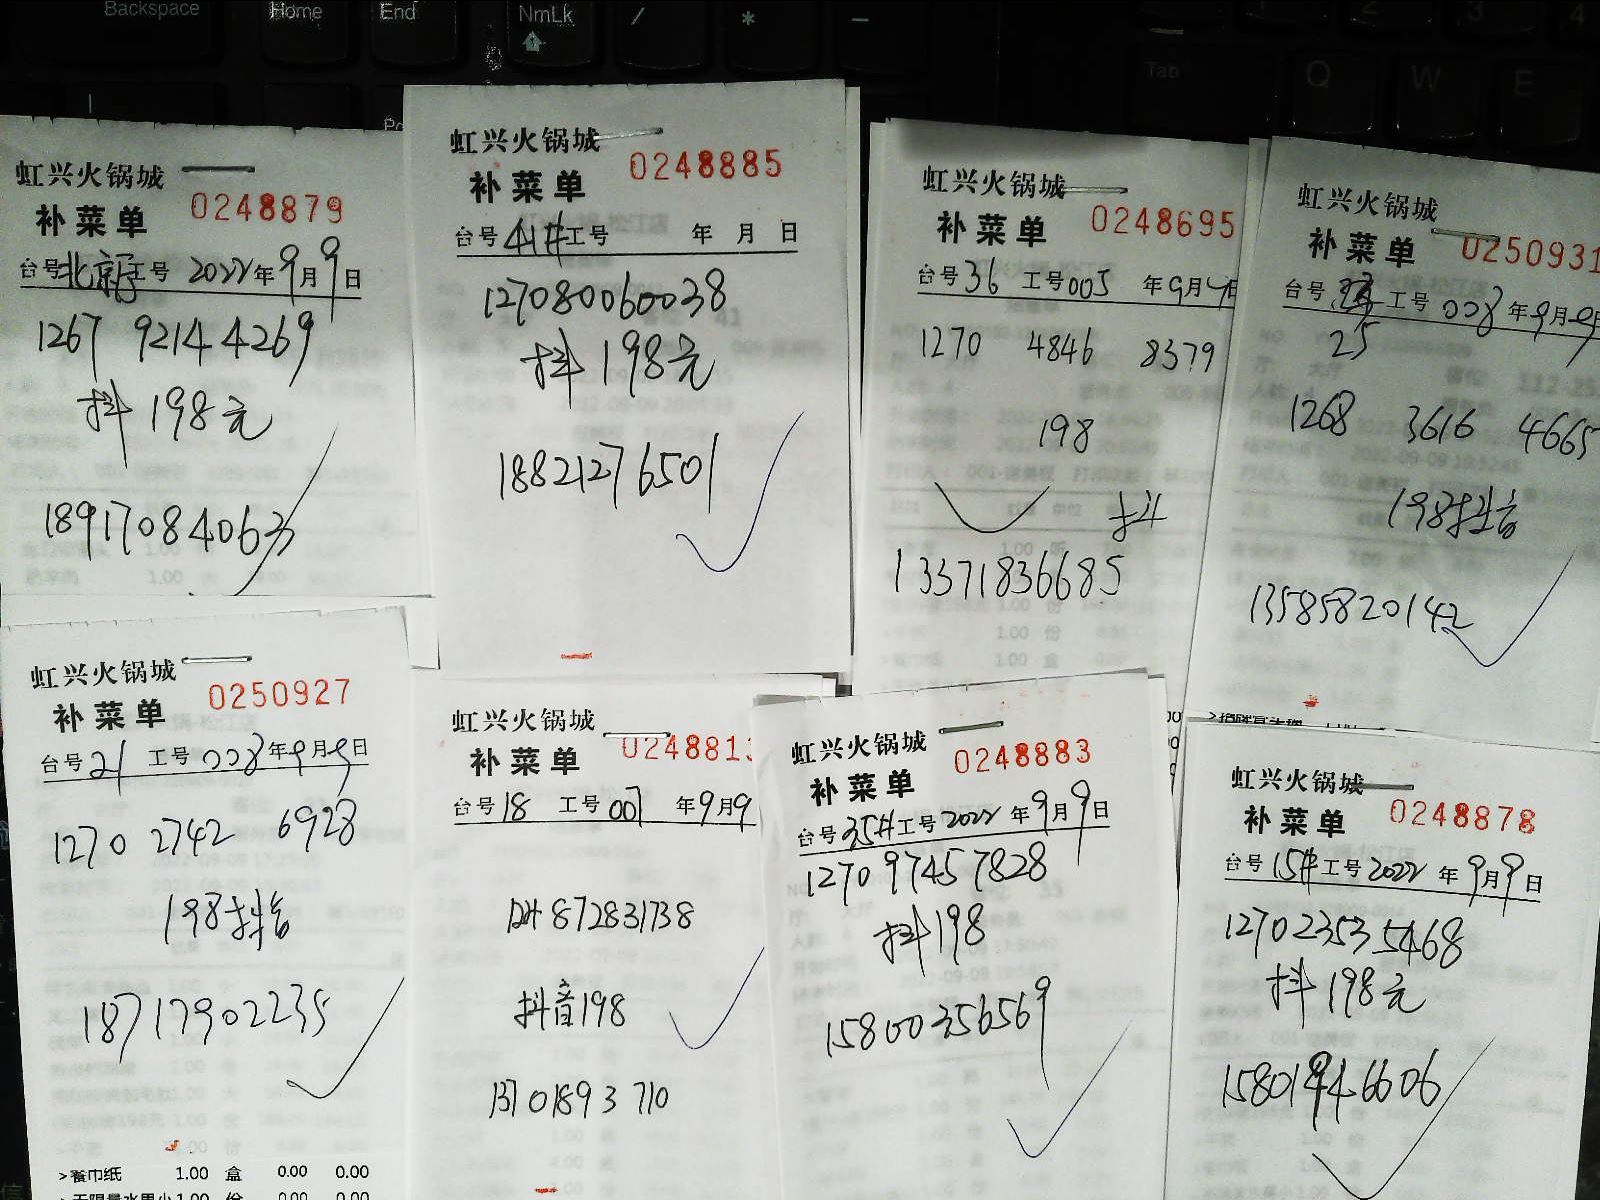 Backspace
Home
End
NmLk
/
*
-
Tab
Q
W
E
虹兴火锅城
0248879
补菜单
台号 北京厅 工号 2022年9月9日
1267 9214 4269
抖 198元
18917084063
虹兴火锅城
0248885
补菜单
台号 41# 工号 年 月 日
127080060038
抖 198元
18821276501
虹兴火锅城
0248695
补菜单
台号 36 工号 005 年9月9日
1270 4846 8379
198
抖
13371836685
虹兴火锅城
0250931
补菜单
台号 工号 008 年9月9
25
1268 3616 4665
198抖音
13585820142
虹兴火锅城
0250927
补菜单
台号 21 工号 008 年9月9日
1270 2742 6928
198抖音
18717902235
虹兴火锅城
024881
补菜单
台号 18 工号 007 年9月9
872831738
抖音198
13701893710
虹兴火锅城
0248883
补菜单
台号 35# 工号 2022年9月9日
1270 9745 7828
抖198
15800356569
虹兴火锅城
0248878
补菜单
台号 15# 工号 2022年9月9日
1270 2353 5468
抖 198元
15801946606
>餐巾纸 1.00 盒 0.00 0.00